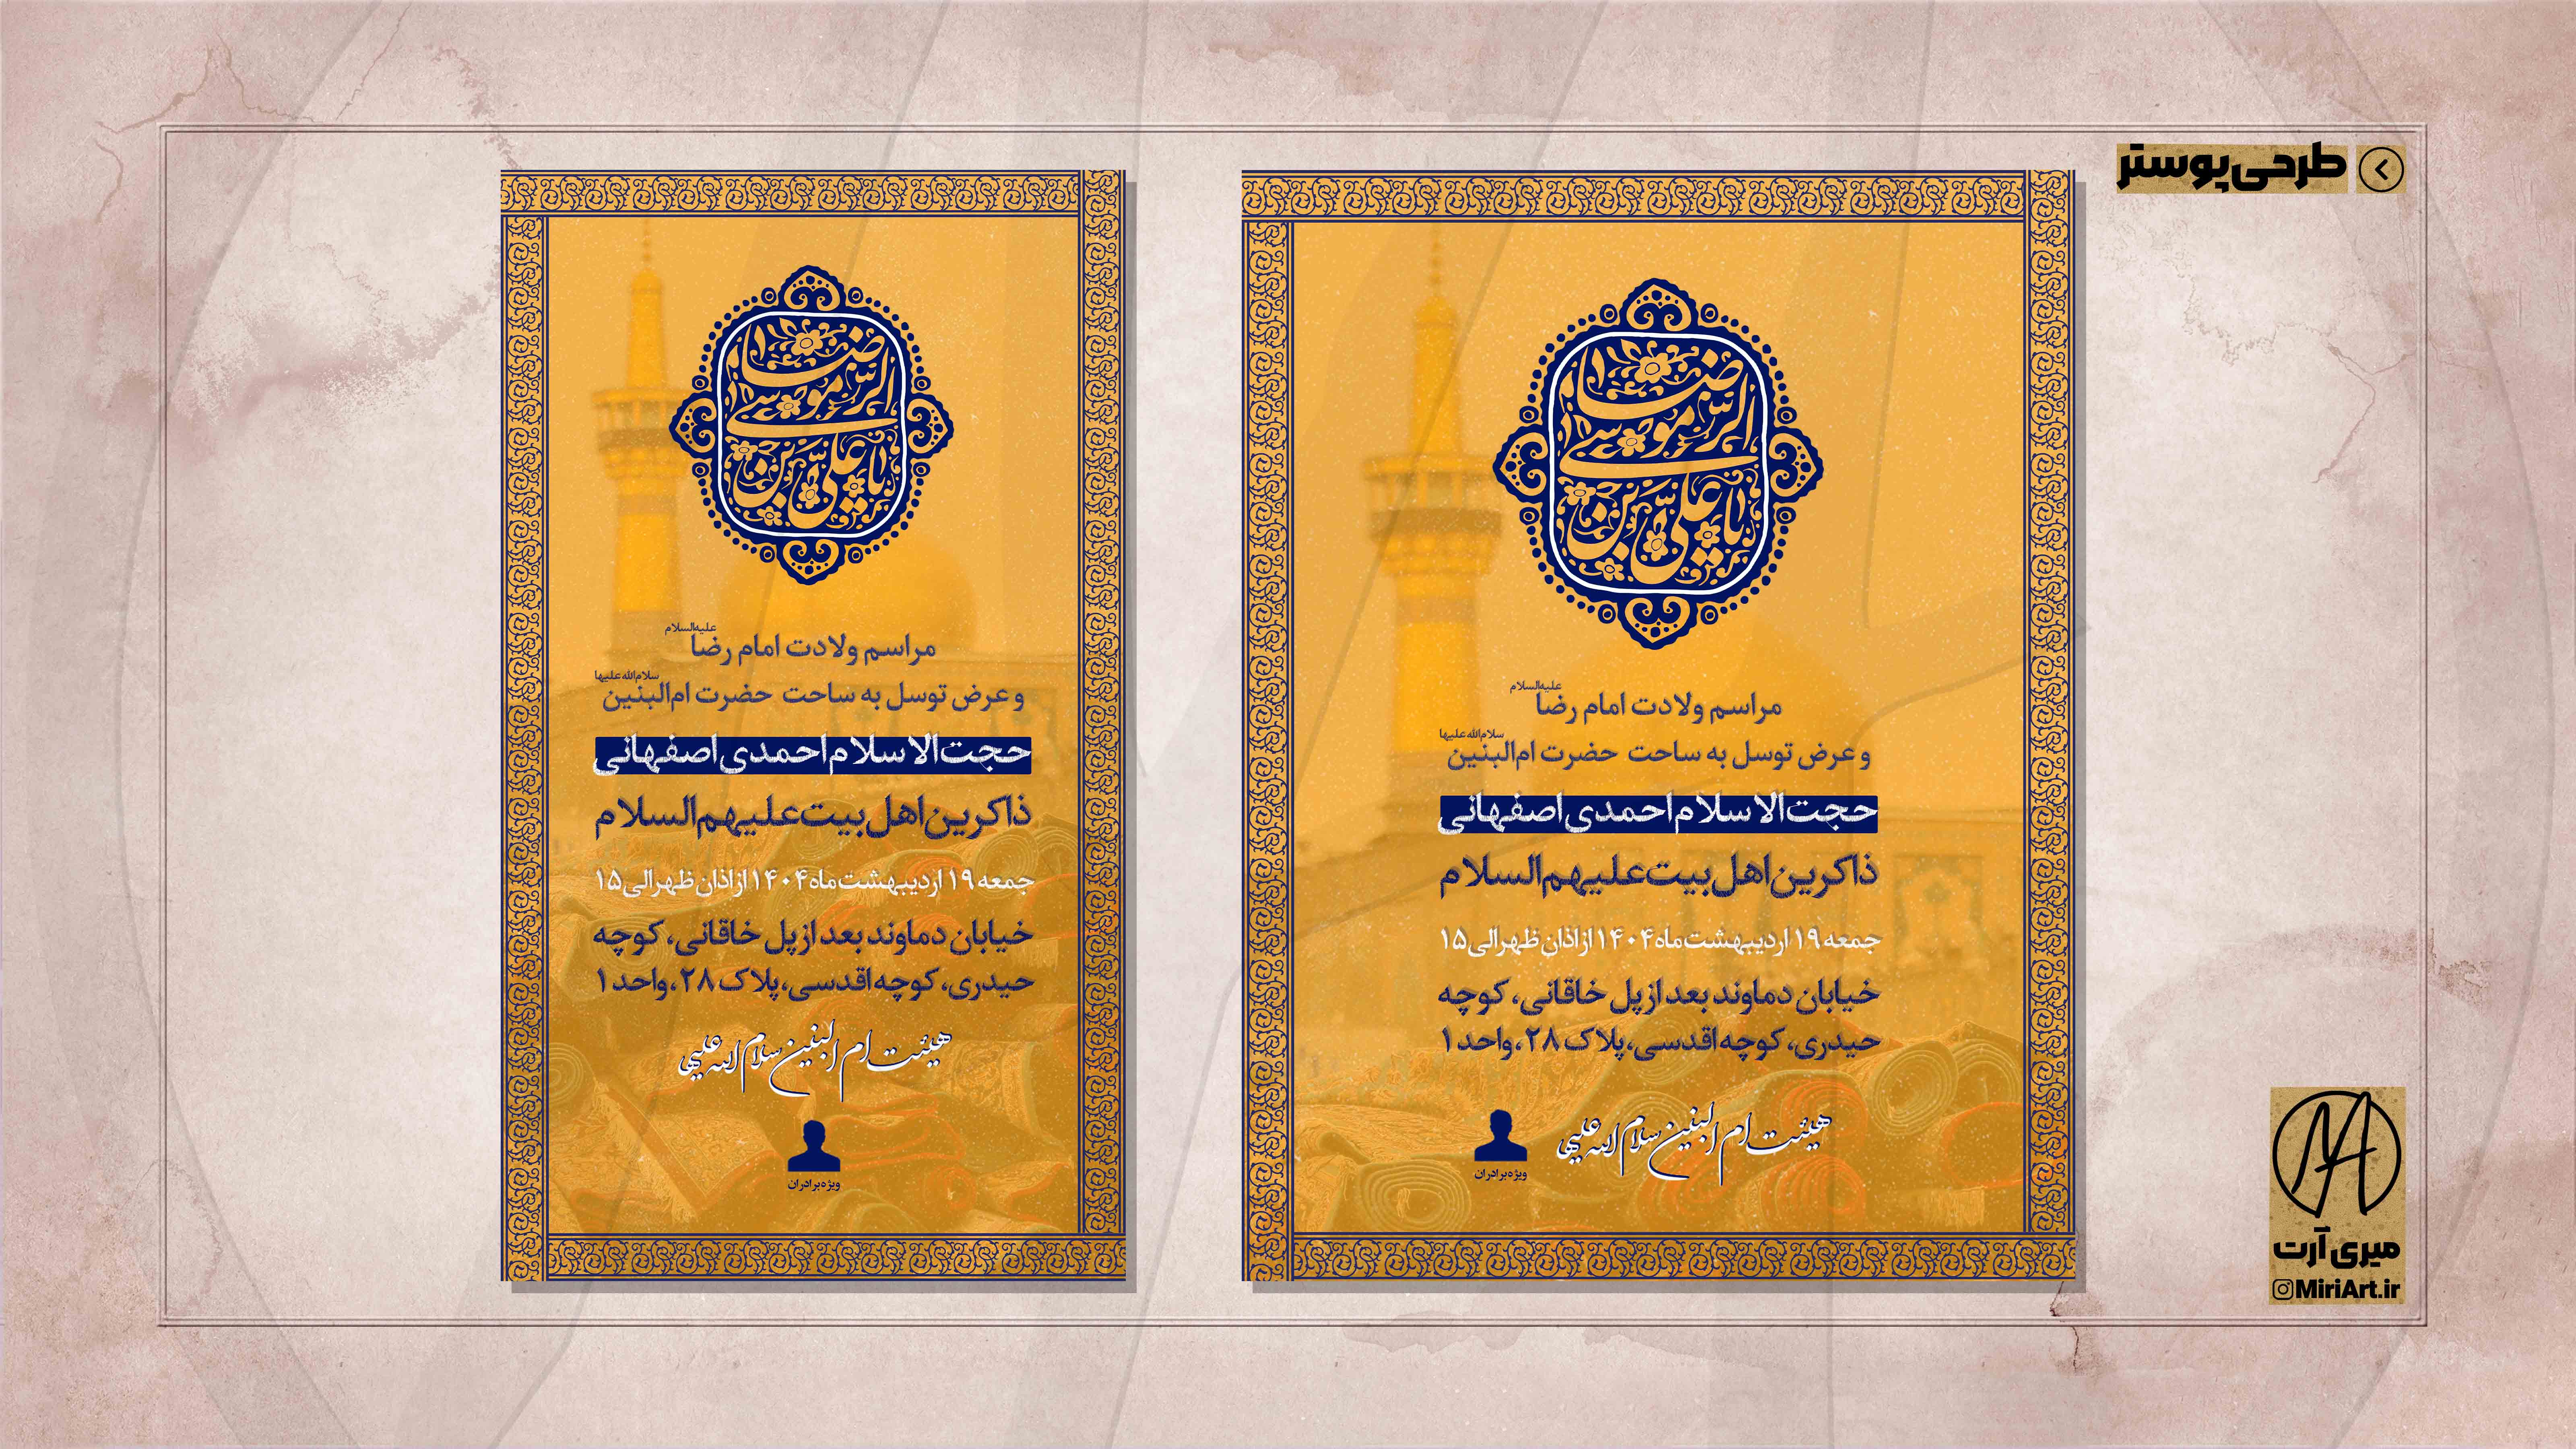 طرحی پوستر
الرضا
موسی
یا علی بن
مراسم ولادت امام رضا علیه‌السلام
و عرض توسل به ساحت حضرت ام‌البنین سلام‌الله علیها
حجت‌الاسلام احمدی اصفهانی
ذاکرین اهل بیت علیهم السلام
جمعه ۱۹ اردیبهشت ماه ۱۴۰۴ از اذان ظهر الی ۱۵
خیابان دماوند بعد از پل خاقانی، کوچه
حیدری، کوچه اقدسی، پلاک ۲۸، واحد ۱
هیئت ام البنین سلام الله علیها
ویژه برادران
الرضا
موسی
یا علی بن
مراسم ولادت امام رضا علیه‌السلام
و عرض توسل به ساحت حضرت ام‌البنین سلام‌الله علیها
حجت‌الاسلام احمدی اصفهانی
ذاکرین اهل بیت علیهم السلام
جمعه ۱۹ اردیبهشت ماه ۱۴۰۴ از اذان ظهر الی ۱۵
خیابان دماوند بعد از پل خاقانی، کوچه
حیدری، کوچه اقدسی، پلاک ۲۸، واحد ۱
هیئت ام البنین سلام الله علیها
ویژه برادران
MA
میری آرت
MiriArt.ir